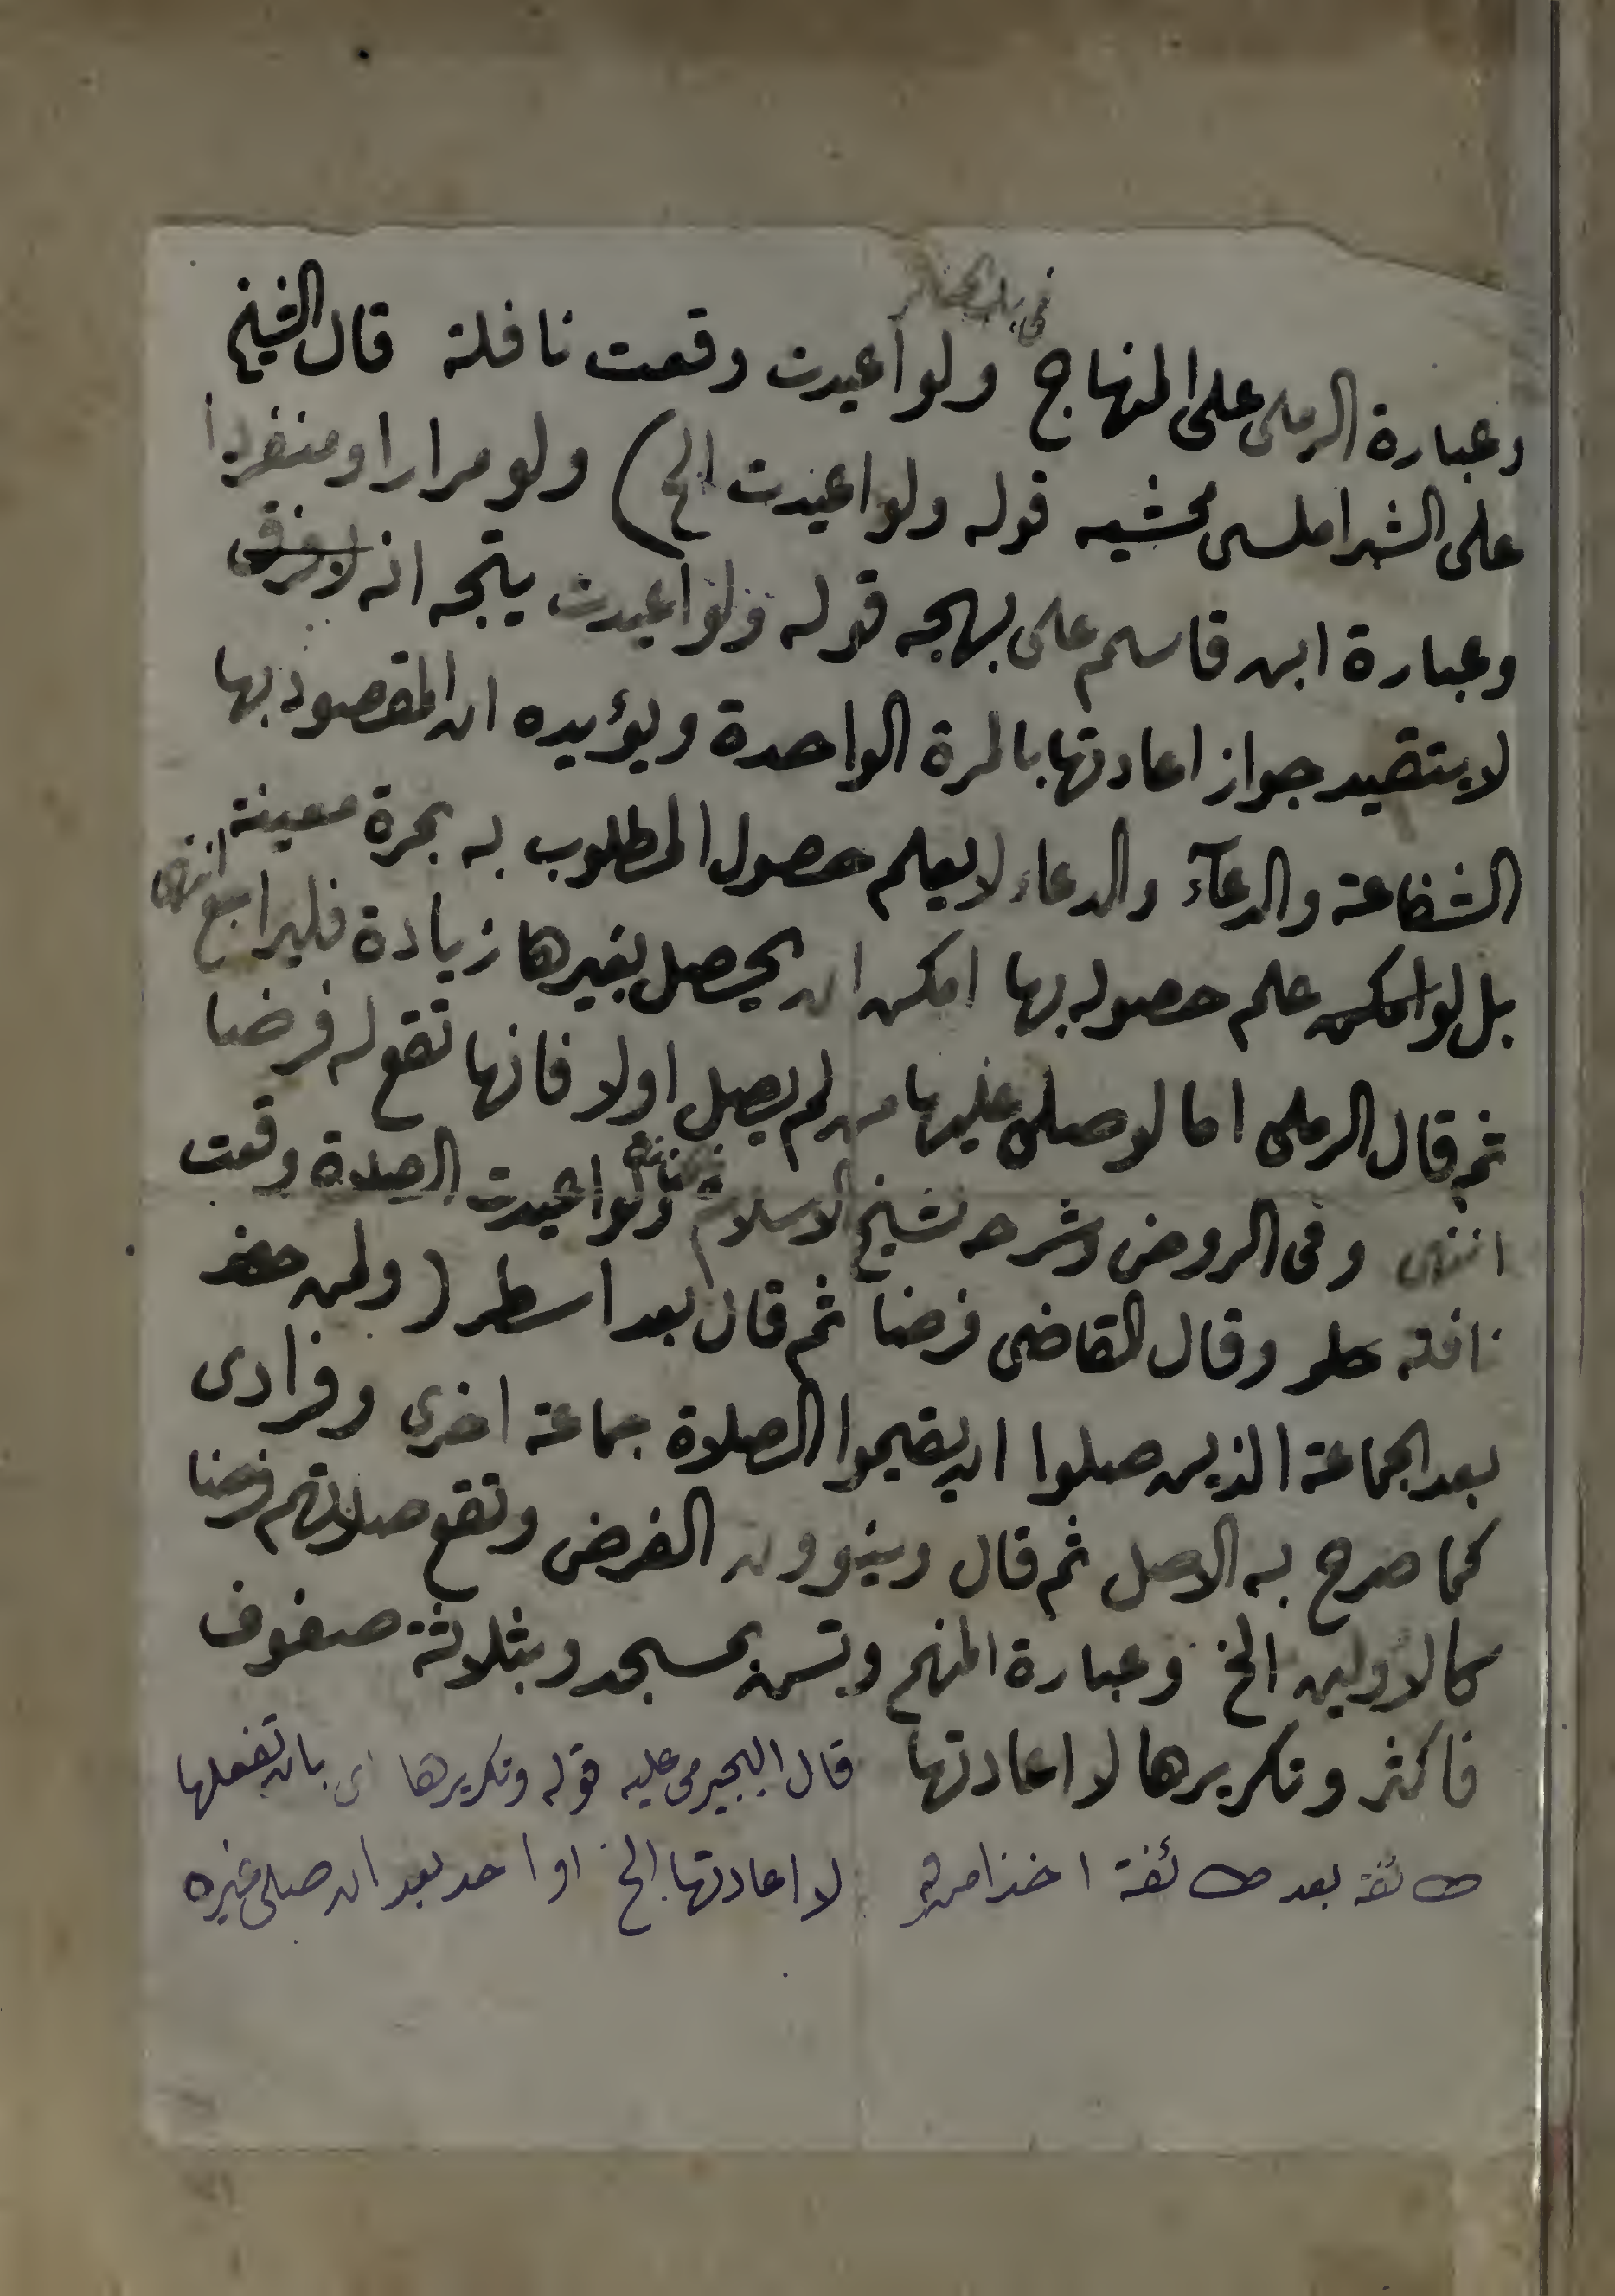 في باب الجنائز
وعبارة الرملى على المنهاج ولو اعيدت وقعت نافلة قال الشيخ
على الشبراملسى محشيه قوله ولو اعيدت الخ) ولو مرارا ومنفردا
وعبارة ابن قاسم على بهجه قوله ولو اعيدت يتجه انه لا فرق
لا يتقيد جواز اعادتها بالمرة الواحدة ويؤيده ان المقصود بها
الشفاعة والدعآء والدعاء لا يعلم حصول المطلوب به بمرة معينة
بل لو امكن علم حصوله بها امكن ان يحصل بغيرها زيادة فليراجع انتهى
ثم قال الرملى اما لو صلى عليها من لم يصل اولا فانها تقع له فرضا
انتهى وفى الروض وشرحه لشيخ الاسلام ولو اعيدت الصلاة وقعت
نافلة وقال القاضى فرضا ثم قال بعد اسطر (ولمن حضر
بعد الجماعة الذين صلوا ان يقيموا الصلاة جماعة اخرى وفرادى
كما صرح به الاصل ثم قال وينوون الفرض وتقع صلاتهم فرضا
كالاولين الخ وعبارة المنهج وتسن بمسجد وبثلاثة صفوف
فاكثر وتكريرها لا اعادتها قال البجيرمى عليه قوله وتكريرها اى بان تفعلها
طائفة بعد طائفة اخذا من لا اعادتها الخ او احد بعد ان صلى غيره